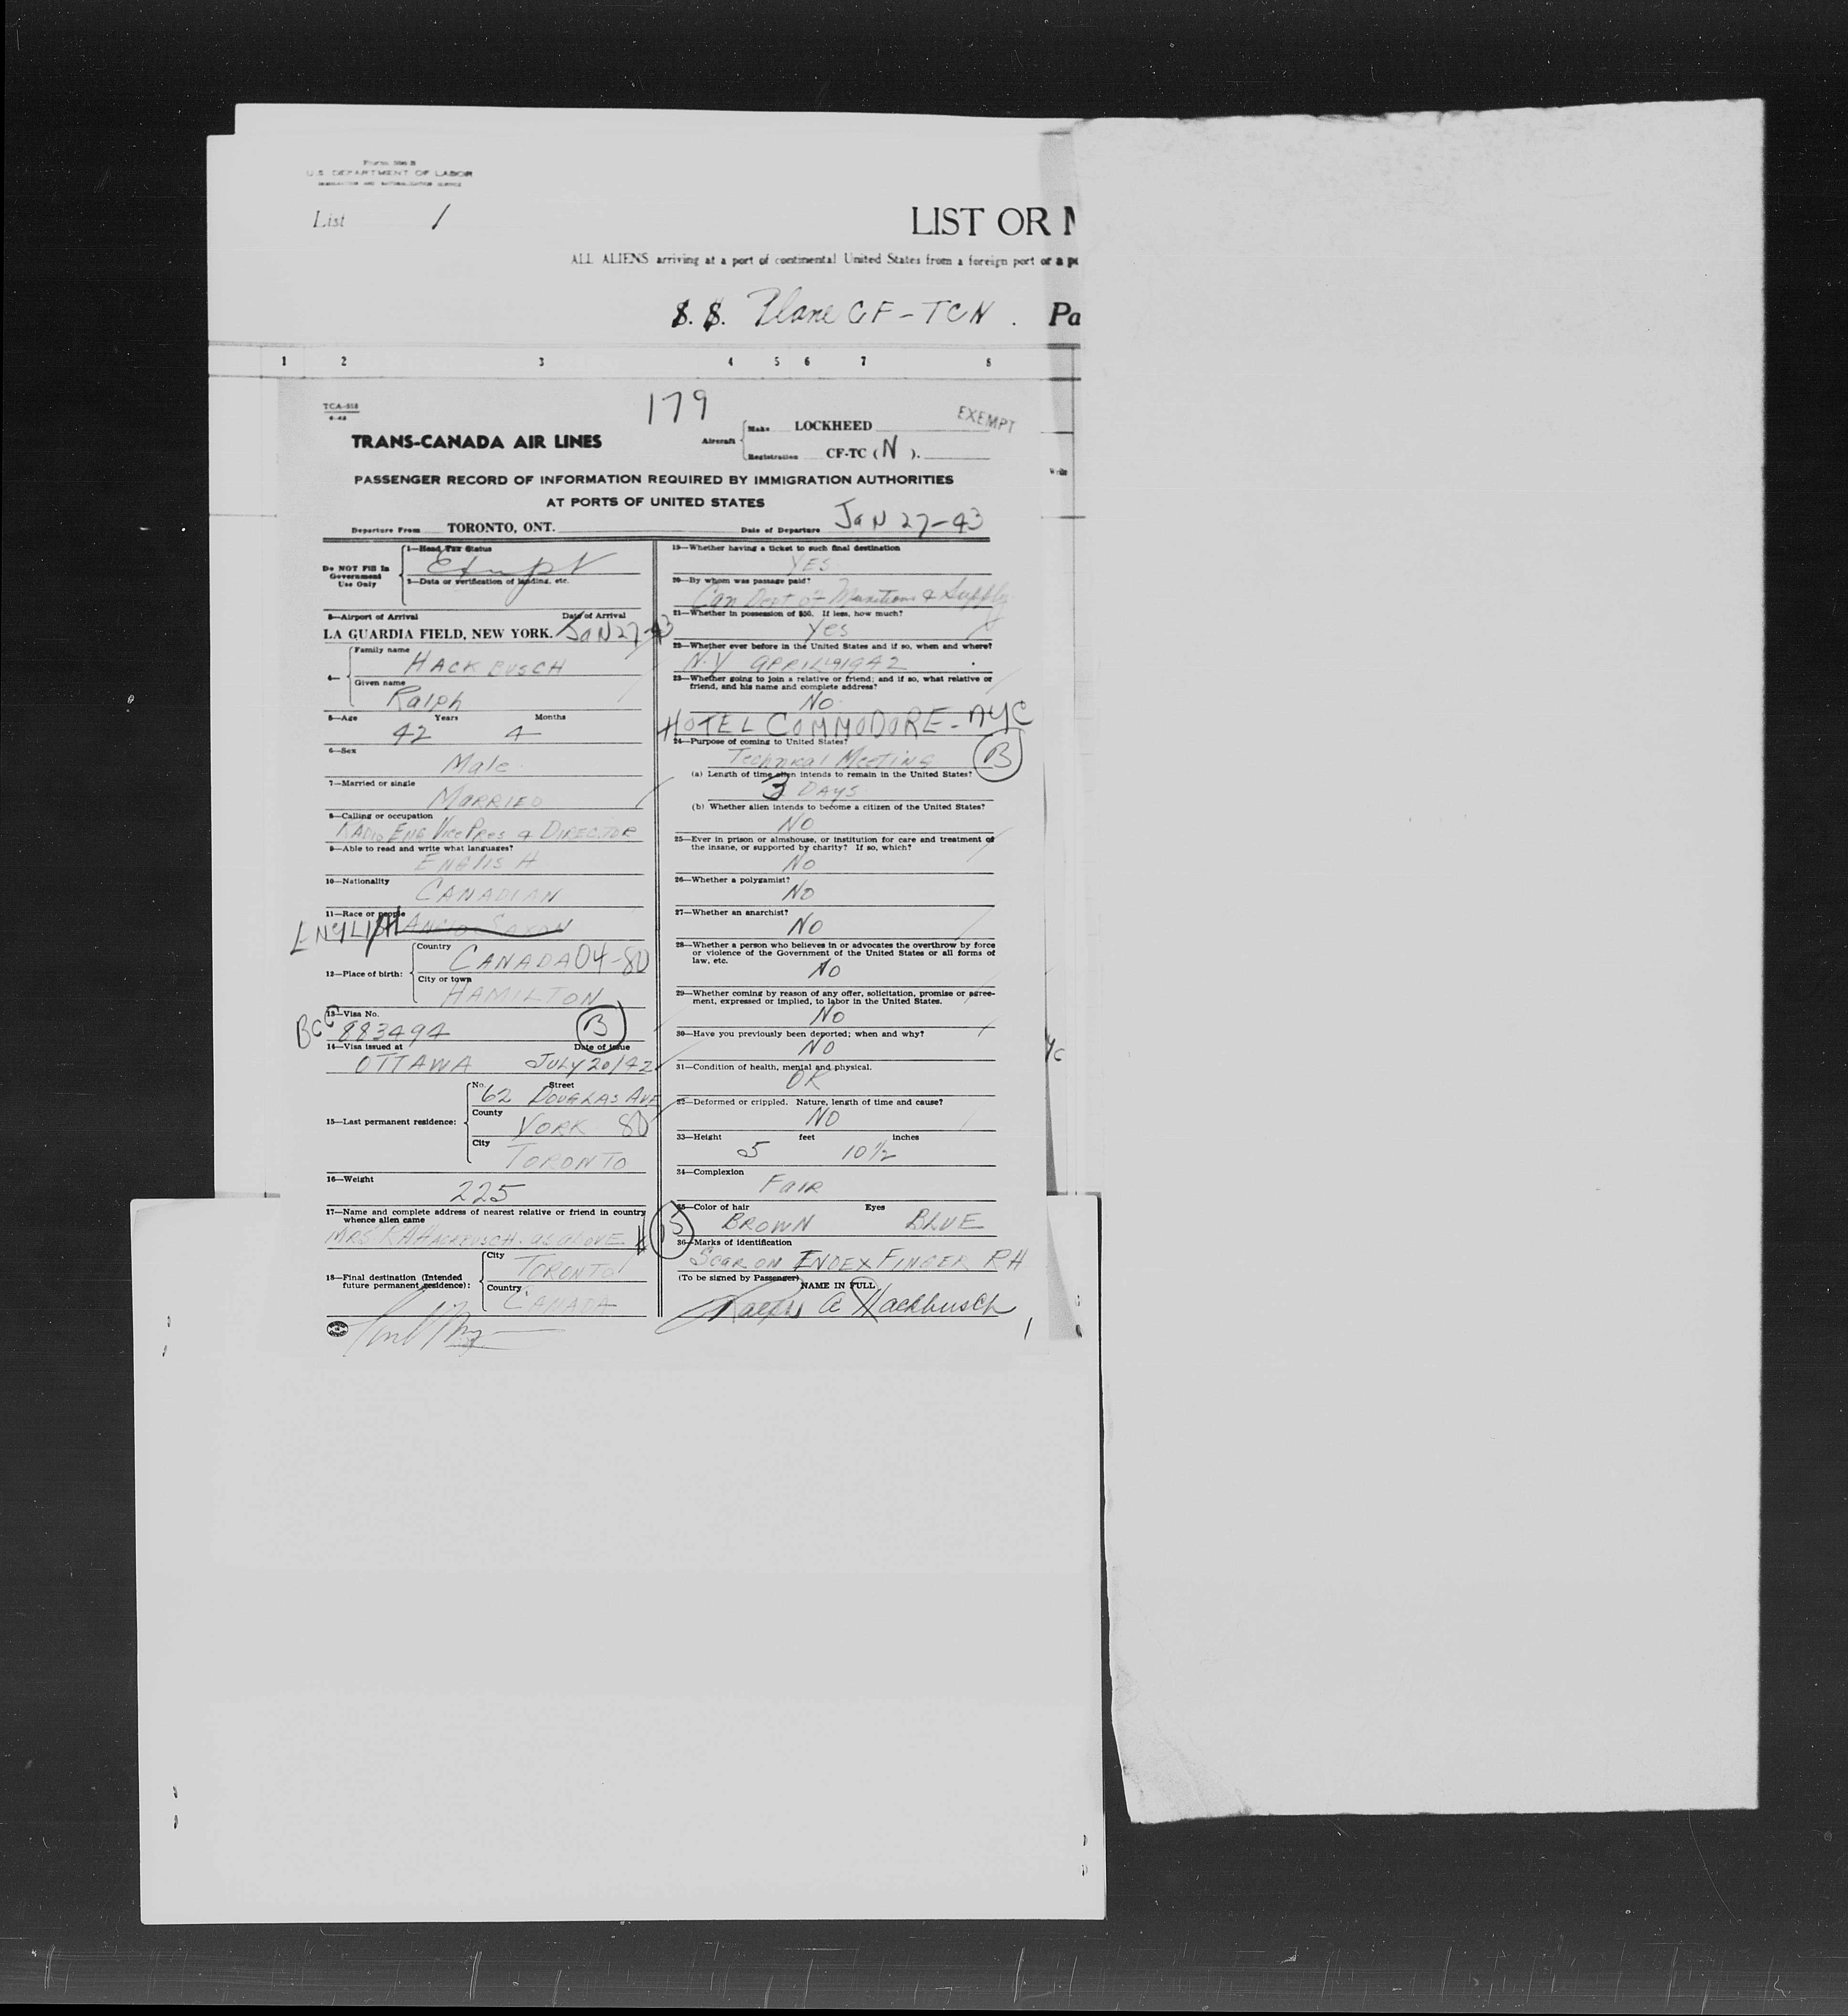 Form 500 B
U.S. DEPARTMENT OF LABOR
IMMIGRATION AND NATURALIZATION SERVICE
List 1
LIST OR M
ALL ALIENS arriving at a port of continental United States from a foreign port or a po
S. S. Plane CF-TCN. Pa
1 2 3 4 5 6 7 8
179
EXEMPT
TRANS-CANADA AIR LINES
Aircraft Make LOCKHEED
Registration CF-TC ( N ).
Write
PASSENGER RECORD OF INFORMATION REQUIRED BY IMMIGRATION AUTHORITIES
AT PORTS OF UNITED STATES
Departure From TORONTO, ONT. Date of Departure JaN 27-43
Do NOT Fill In Government Use Only
1—Head Tax Status
Exempt
2—Data or verification of landing, etc.
3—Airport of Arrival Date of Arrival
LA GUARDIA FIELD, NEW YORK. JaN 27-43
4— Family name
HACKBUSCH
Given name
Ralph
5—Age Years Months
42 4
6—Sex
Male
7—Married or single
MARRIED
8—Calling or occupation
RADIO ENG VICE PRES & DIRECTOR
9—Able to read and write what languages?
ENGLISH
10—Nationality
CANADIAN
11—Race or people
ENGLISH ANGLO SAXON
12—Place of birth: Country
CANADA 04-80
City or town
HAMILTON
13—Visa No.
BCC 883494 B
14—Visa issued at Date of issue
OTTAWA JULY 20/42
15—Last permanent residence: No. Street
62 DOUGLAS AVE
County
YORK 80
City
TORONTO
16—Weight
225
17—Name and complete address of nearest relative or friend in country
whence alien came
MRS R A HACKBUSCH. as above
18—Final destination (Intended
future permanent residence): City
TORONTO
Country
CANADA
19—Whether having a ticket to such final destination
YES
20—By whom was passage paid?
Can Dept of Munitions & Supply
21—Whether in possession of $50. If less, how much?
Yes
22—Whether ever before in the United States and if so, when and where?
N.Y APRIL 1942
23—Whether going to join a relative or friend; and if so, what relative or
friend, and his name and complete address?
No
HOTEL COMMODORE - NYC
24—Purpose of coming to United States?
Technical Meeting B
(a) Length of time alien intends to remain in the United States?
3 DAYS
(b) Whether alien intends to become a citizen of the United States?
NO
25—Ever in prison or almshouse, or institution for care and treatment of
the insane, or supported by charity? If so, which?
No
26—Whether a polygamist?
No
27—Whether an anarchist?
No
28—Whether a person who believes in or advocates the overthrow by force
or violence of the Government of the United States or all forms of
law, etc.
No
29—Whether coming by reason of any offer, solicitation, promise or agree-
ment, expressed or implied, to labor in the United States.
No
30—Have you previously been deported; when and why?
No
31—Condition of health, mental and physical.
OK
32—Deformed or crippled. Nature, length of time and cause?
NO
33—Height feet inches
5 10 1/2
34—Complexion
FAIR
35—Color of hair Eyes
BROWN BLUE
36—Marks of identification
Scar on INDEX FINGER RH
(To be signed by Passenger) NAME IN FULL
Ralph A Hackbusch